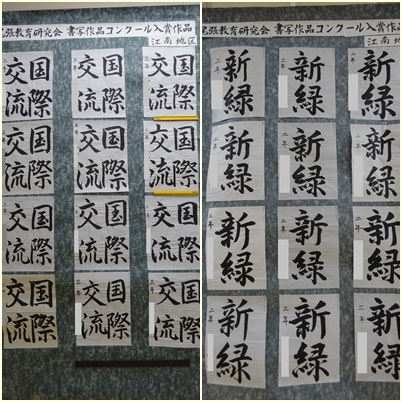 尾張教育研究会 書写作品コンクール入賞作品
江南地区
国際
交流
国際
交流
国際
交流
国際
交流
国際
交流
国際
交流
国際
交流
国際
交流
国際
交流
国際
交流
国際
交流
国際
交流
尾張教育研究会 書写作品コンクール入賞作品
江南地
新緑
二年
新緑
二年
新緑
二年
新緑
二年
新緑
二年
新緑
二年
新緑
二年
新緑
二年
新緑
二年
新緑
二年
新緑
二年
新緑
二年